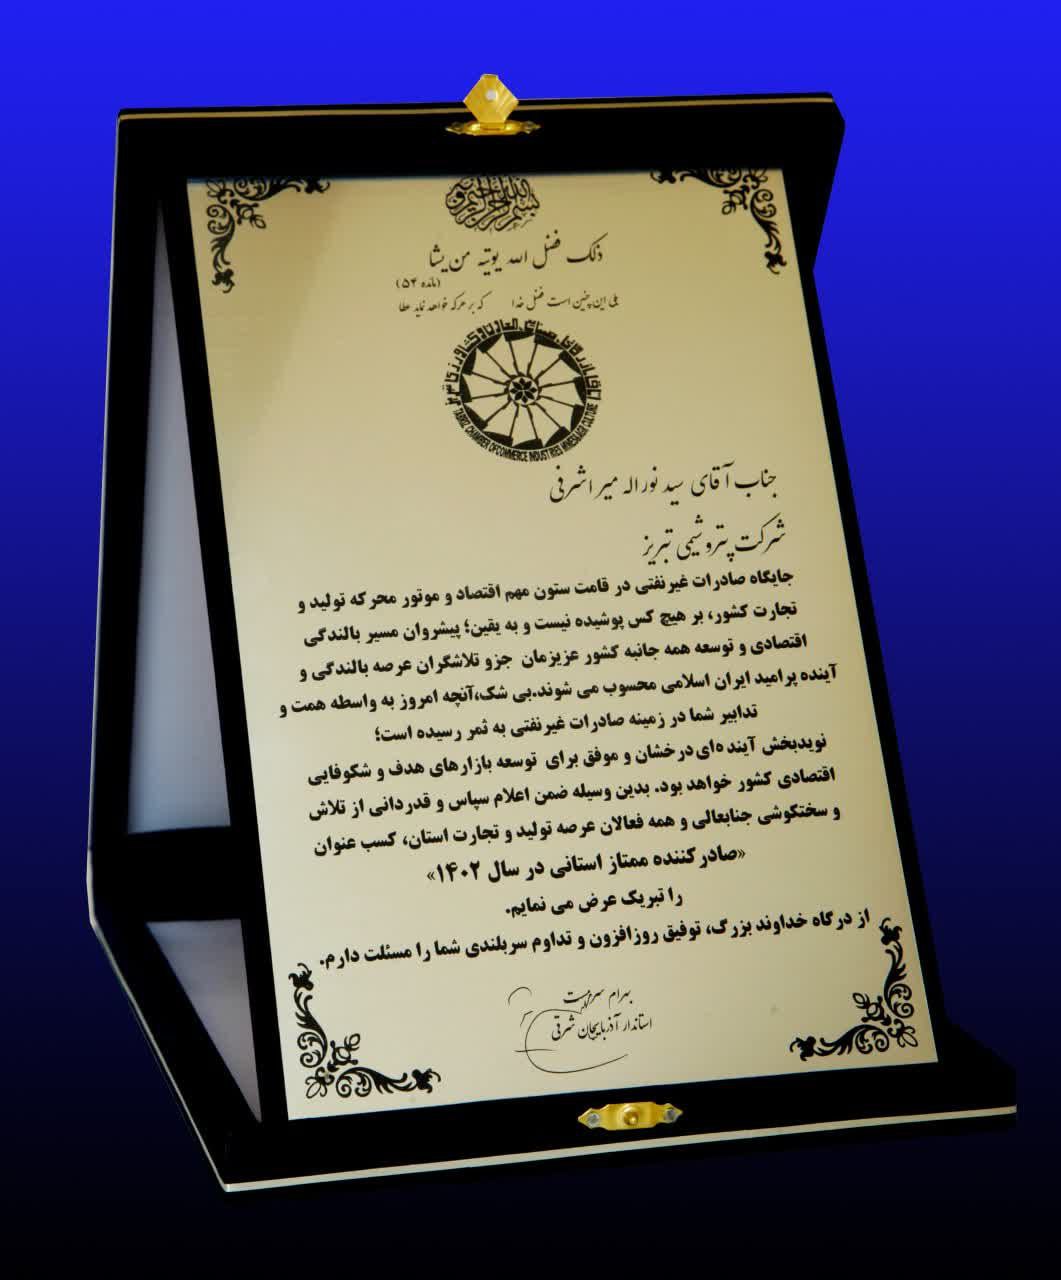 بسم الله الرحمن الرحیم
ذلک فضل الله یوتیه من یشا
(مائده ۵۴)
بلی این چنین است فضل خدا که بر هرکه خواهد نماید عطا
اتاق بازرگانی، صنایع، معادن و کشاورزی تبریز
TABRIZ CHAMBER OFCOMMERCE INDUSTRIES MINES&AGRI CULTURE
جناب آقای سید نوراله میراشرفی
شرکت پتروشیمی تبریز
جایگاه صادرات غیرنفتی در قامت ستون مهم اقتصاد و موتور محرکه تولید و
تجارت کشور، بر هیچ کس پوشیده نیست و به یقین؛ پیشروان مسیر بالندگی
اقتصادی و توسعه همه جانبه کشور عزیزمان جزو تلاشگران عرصه بالندگی و
آینده پرامید ایران اسلامی محسوب می شوند.بی شک،آنچه امروز به واسطه همت و
تدابیر شما در زمینه صادرات غیرنفتی به ثمر رسیده است؛
نویدبخش آینده ای درخشان و موفق برای توسعه بازارهای هدف و شکوفایی
اقتصادی کشور خواهد بود. بدین وسیله ضمن اعلام سپاس و قدردانی از تلاش
و سختکوشی جنابعالی و همه فعالان عرصه تولید و تجارت استان، کسب عنوان
«صادرکننده ممتاز استانی در سال ۱۴۰۲»
را تبریک عرض می نمایم.
از درگاه خداوند بزرگ، توفیق روزافزون و تداوم سربلندی شما را مسئلت دارم.
بهرام سرمست
استاندار آذربایجان شرقی